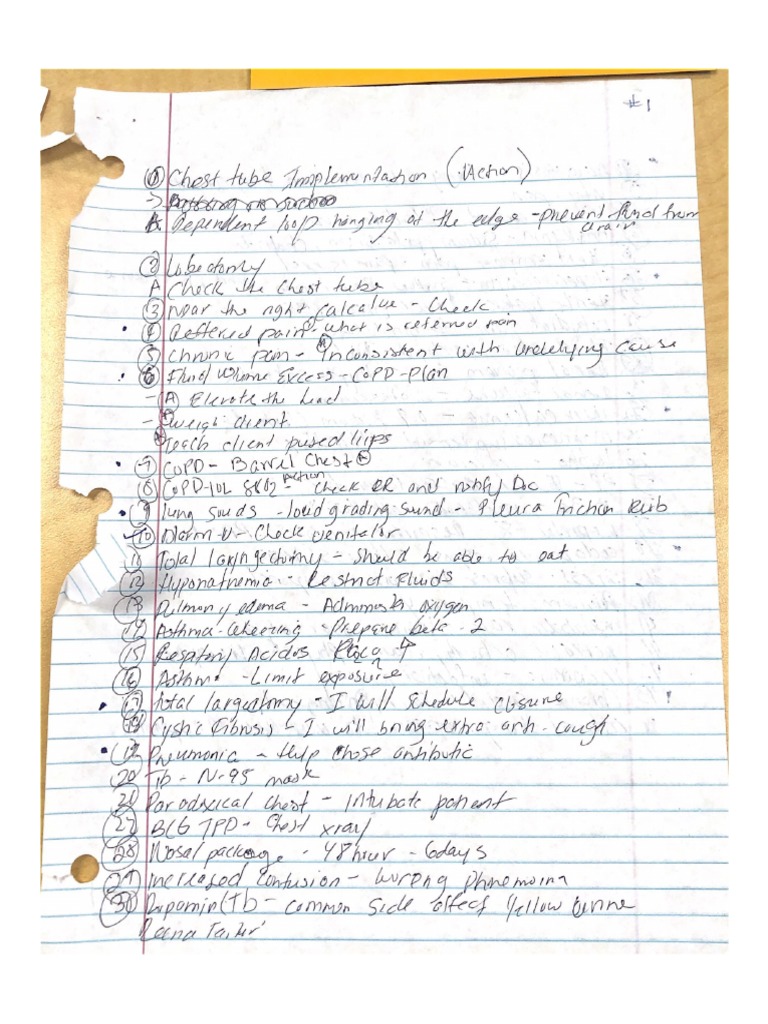 #1
① Chest tube Implementation (Action)
A. Dependent loop hanging at the edge - prevent fluid from
drain
② Lobectomy
A Check the Chest tube
③ near the right - Check
④ Reffered pain - what is referred pain
⑤ Chronic pain - Inconsistent with Underlying cause
⑥ Fluid Volume Excess - COPD - Plan
- Ⓐ Elevate the head
- weigh client
teach client pused lips
⑦ COPD - Barrel Chest Ⓐ
action
⑧ COPD - 10L - Check DR and notify Doc
⑨ lung souds - loud grading sund - Pleura Friction Rub
⑩ Alarm - Check
⑪ Total laringectomy - should be able to eat
⑫ Hyponatremia - Restrict Fluids
⑬ Pulmonary edema - Administer oxygen
⑭ Asthma - Wheezing - Prepare beta - 2
⑮ Respitory Acidos ↑
⑯ Asthma - Limit exposure
⑰ total - I will schedule closure
⑱ Cystic Fibrosis - I will bring extra - cough
⑲ Pneumonia - Help chose antibiotic
⑳ Tb - N-95 mask
Paradoxical chest - Intubate patient
㉗ BCG TPD - Chest xray
㉘ Nasal package - 48 hour - 6 days
㉙ Increased Confusion - Wurong
㉚ (Tb - common side effect Yellow